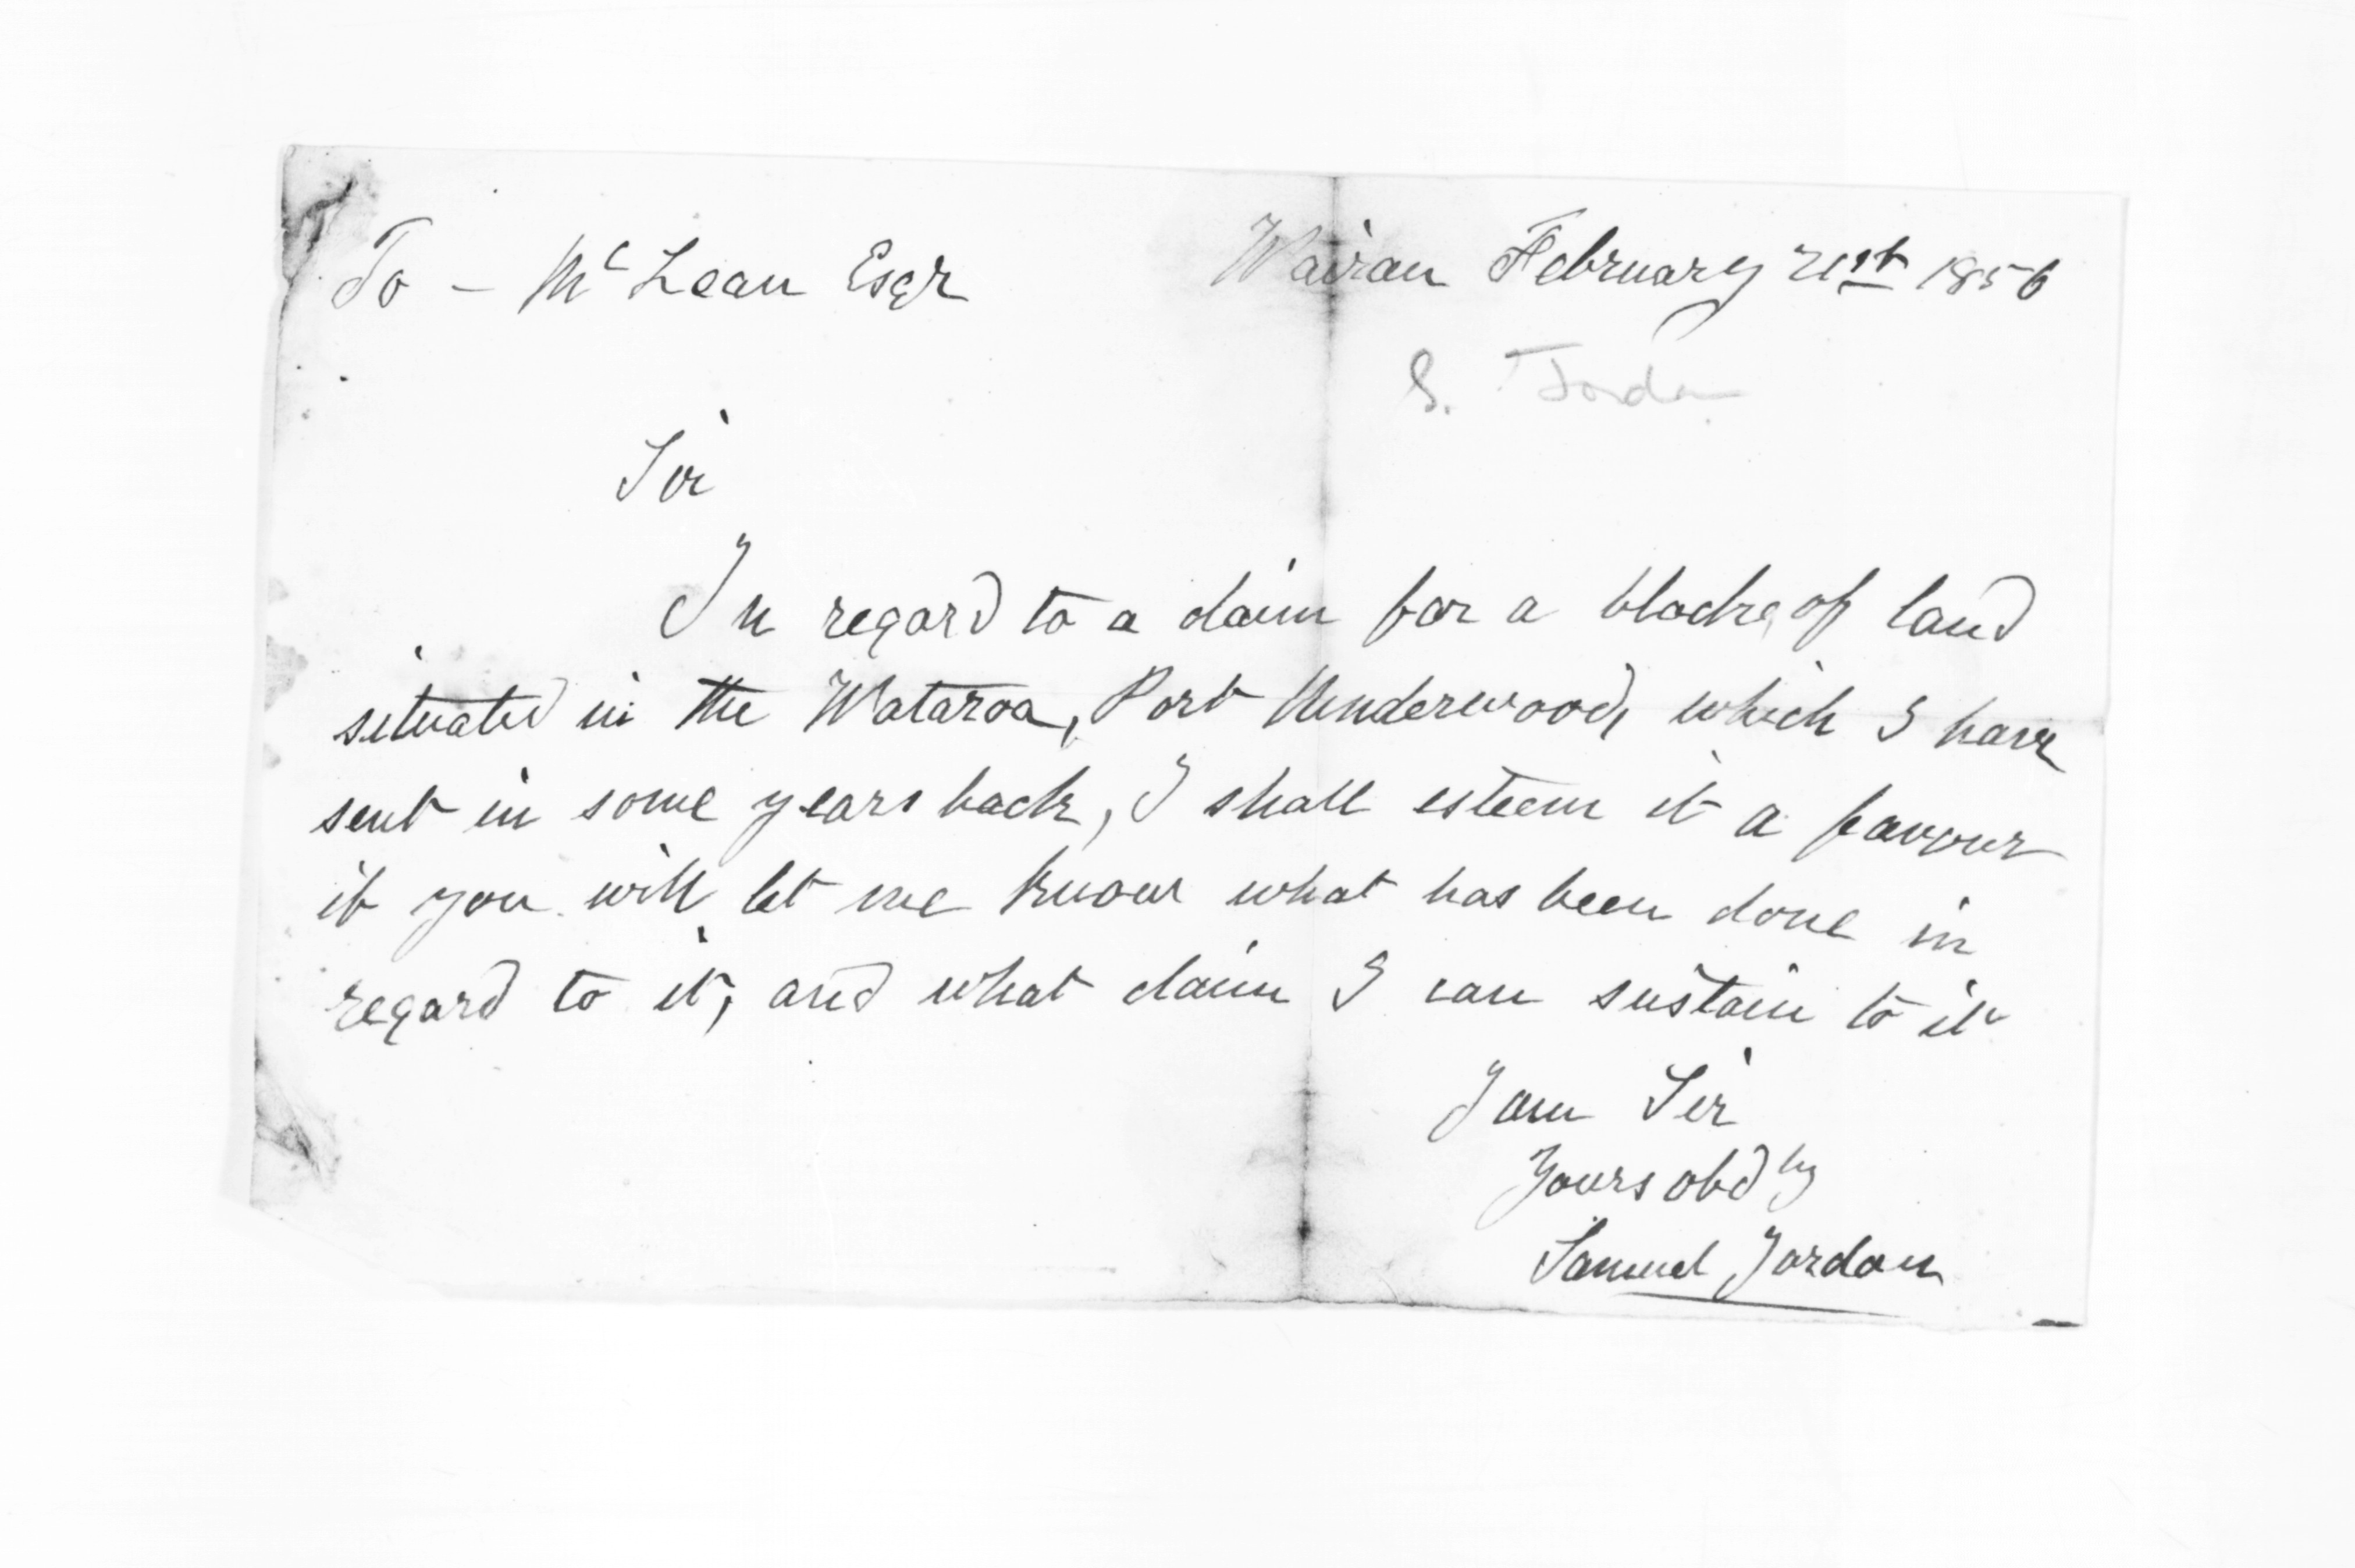 To - McLean Esqr Wairau February 21st 1856
S. Jordan
Sir
In regard to a claim for a blocke of land
situated in the Wataroa, Port Underwood, which I have
sent in some years back, I shall esteem it a favour
if you will let me know what has been done in
regard to it, and what claim I can sustain to it
I am Sir
Yours obdly
Samuel Jordan